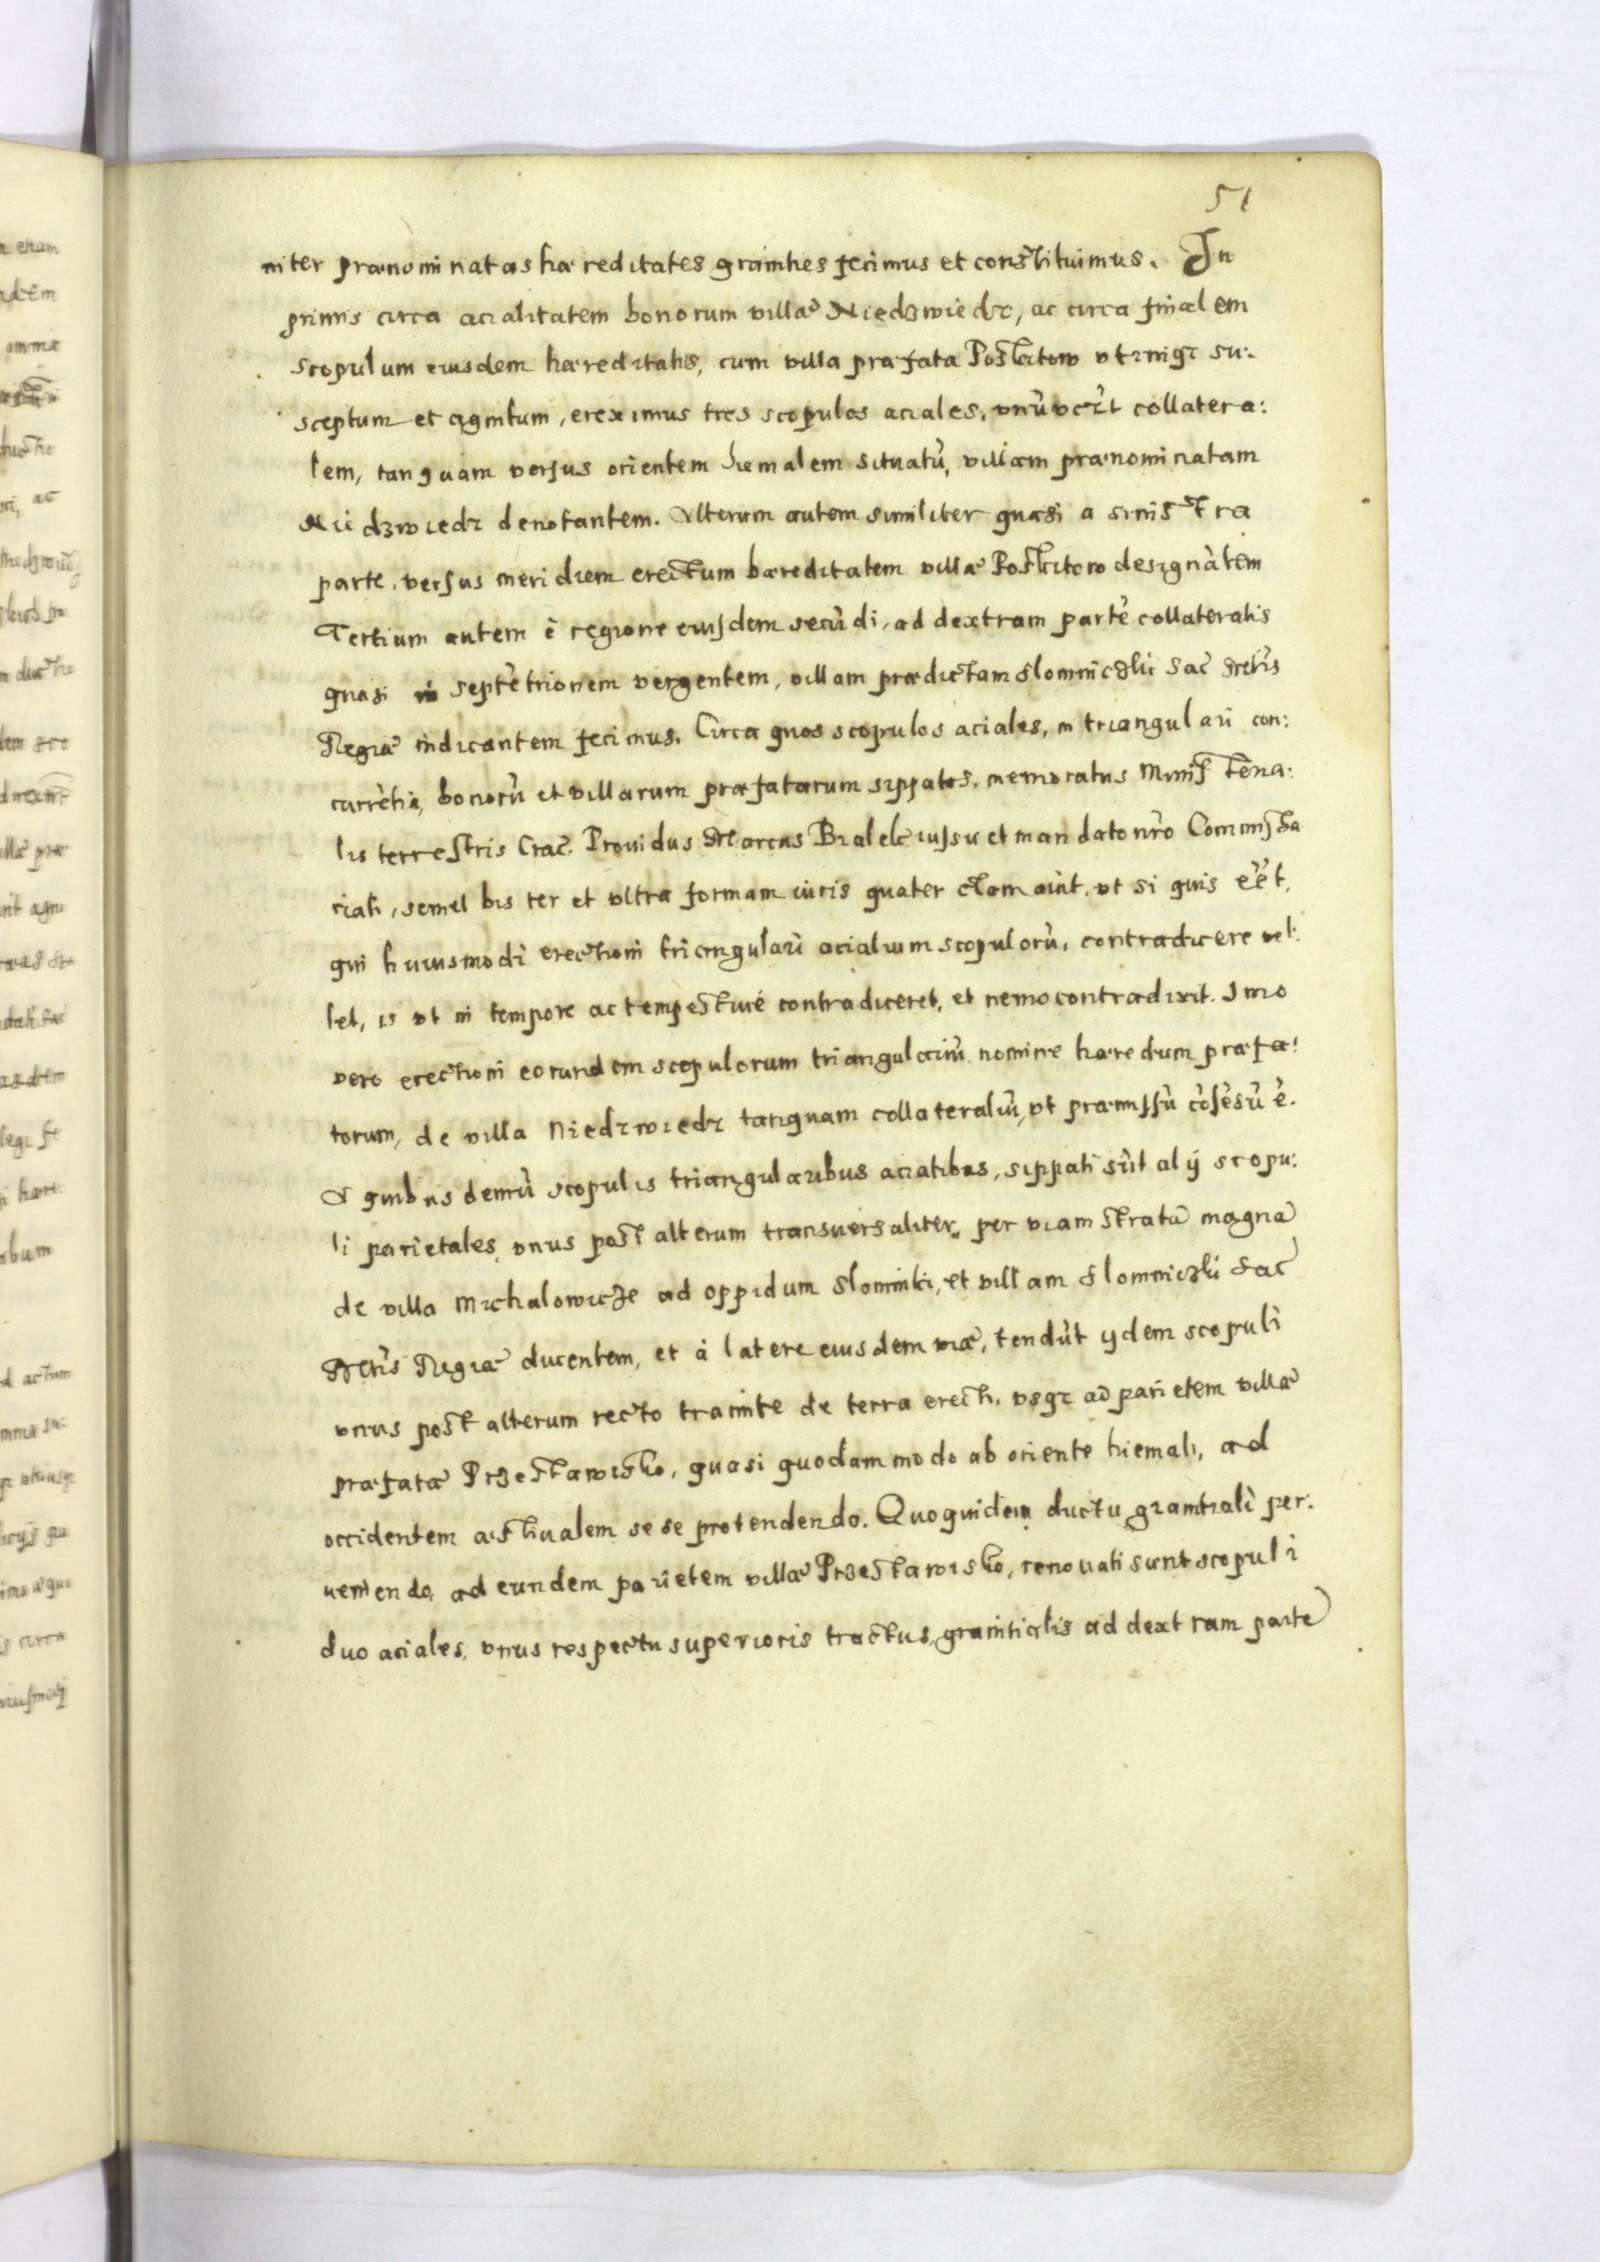 51
inter prænominatas hæreditates granities fecimus et constituimus. In
primis circa acialitatem bonorum villæ Niedzwiedz, ac circa finalem
scopulum eiusdem hæreditatis, cum villa præfata Poskwitow utrinqz su:
sceptum et agnitum, ereximus tres scopulos aciales, vnũ collatera:
lem, tanquam versus orientem hiemalem situatũ, villam prænominatam
Niedzwiedz denotantem. Alterum autem similiter quasi a sinistra
parte, versus meridiem erectum hæreditatem villæ Poskwitow designãtem
Tertium autem è regione eiusdem secũdi, ad dextram partẽ collateralis
quasi in septẽtrionem vergentem, villam prædictam Slomniczki Sac Mtis
Regiæ indicantem fecimus. Circa quos scopulos aciales, in triangulari con:
currẽtia, bonorũ et villarum præfatarum sippatos, memoratus Ministeria:
lis terrestris Crac. Prouidus Marcus Bialek iussu et mandato nro Commissa
riali, semel bis ter et vltra formam iuris quater clamauit, vt si quis eẽt,
qui huiusmodi erectioni triangulari acialium scopulorũ, contradicere vel:
let, is vt in tempore ac tempestiuè contradiceret, et nemo contradixit. Imo
vero erectioni eorundem scopulorum triangulariũ nomine hæredum præfa:
torum, de villa Niedzwiedz tanquam collateraliũ, vt præmissũ cõsẽsũ ẽ.
A quibus demũ scopulis triangularibus acialibus, sippati sũt alij scopu:
li parietales, vnus post alterum transuersaliter, per viam stratã magnã
de villa Michalowicze ad oppidum Slomniki, et villam Slomniczki Sac
Mtis Regiæ ducentem, et à latere eiusdem viæ, tendũt ijdem scopuli
vnus post alterum recto tramite de terra erecti, vsqz ad parietem villæ
præfatæ Przestawisko, quasi quodammodo ab oriente hiemali, ad
occidentem æstiualem sese protendendo. Quoquidem ductu granitiali per:
ueniendo, ad eundem parietem villæ Przestawisko, renouati sunt scopuli
duo aciales, vnus respectu superioris tractus, granitialis ad dextram partẽ